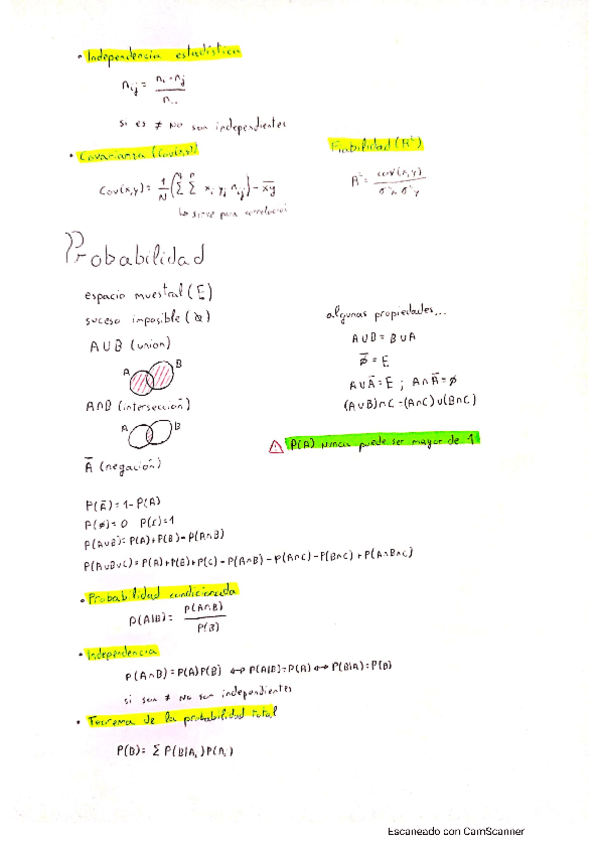 • Independencia estadística
nij = ni. n.j / n..
si es ≠ No son independientes
• Covarianza (Cov(x,y))
Cov(x,y) = 1/N (Σ Σ xi yj nij) - x̄ȳ
↳ sirve para correlación
Fiabilidad (R²)
R² = cov(x,y) / σ²x σ²y
Probabilidad
espacio muestral (E)
suceso imposible (Ø)
A∪B (union)
A B
A∩B (intersección)
A B
Ā (negación)
algunas propiedades...
A∪B = B∪A
Ø̄ = E
A∪Ā = E ; A∩Ā = Ø
(A∪B)∩C = (A∩C)∪(B∩C)
⚠ P(A) nunca puede ser mayor de 1
P(Ā) = 1 - P(A)
P(Ø) = 0 P(E) = 1
P(A∪B) = P(A) + P(B) - P(A∩B)
P(A∪B∪C) = P(A) + P(B) + P(C) - P(A∩B) - P(A∩C) - P(B∩C) + P(A∩B∩C)
• Probabilidad condicionada
P(A|B) = P(A∩B) / P(B)
• Independencia
P(A∩B) = P(A)P(B) ↔ P(A|B) = P(A) ↔ P(B|A) = P(B)
si son ≠ No son independientes
• Teorema de la probabilidad total
P(B) = Σ P(B|Ai)P(Ai)
Escaneado con CamScanner